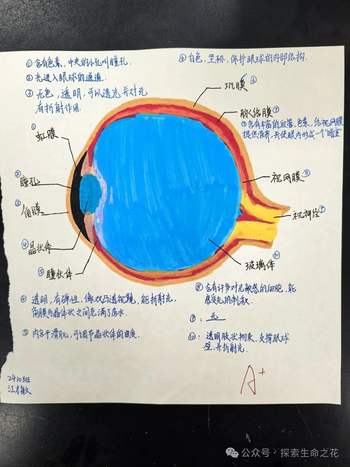 ① 含有色素，中央的小孔叫瞳孔
② 光进入眼球的通道
③ 无色，透明，可以透光并对光
有折射作用
⑥ 白色，坚韧，保护眼球的内部结构
巩膜⑥
脉络膜⑦
⑦ 含有丰富的血管、色素，给视网膜
提供营养，并使眼内形成一个“暗室”
①
虹膜
② 瞳孔
③ 角膜
④ 晶状体
⑤ 睫状体
视网膜⑧
视神经⑨
玻璃体⑩
④ 透明，有弹性，像双凸透镜，能折射光，
角膜与晶体状之间充满了房水
⑤ 内含平滑肌，可调节晶状体的曲度
⑧ 含有许多对光敏感的细胞，能
感受光的刺激
⑨：无
⑩：透明胶状物质，支撑眼球
壁，并折射光
A+
公众号·探索生命之花